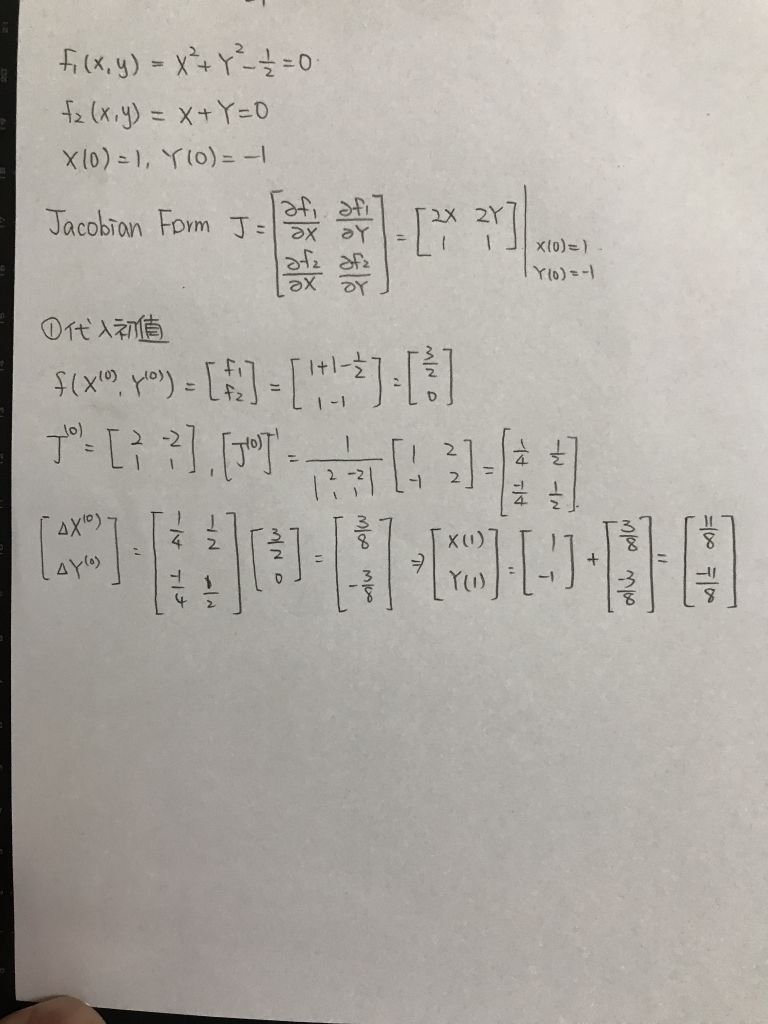 f₁(x,y) = X²+Y²-1/2=0
f₂(x,y) = X+Y=0
X(0)=1, Y(0)=-1
Jacobian Form J = [∂f₁/∂X ∂f₁/∂Y; ∂f₂/∂X ∂f₂/∂Y] = [2X 2Y; 1 1] | X(0)=1 Y(0)=-1
①代入初值
f(X⁽⁰⁾, Y⁽⁰⁾) = [f₁; f₂] = [1+1-1/2; 1-1] = [3/2; 0]
J⁽⁰⁾ = [2 -2; 1 1], [J⁽⁰⁾]⁻¹ = 1/|2 -2; 1 1| [1 2; -1 2] = [1/4 1/2; -1/4 1/2]
[ΔX⁽⁰⁾; ΔY⁽⁰⁾] = [1/4 1/2; -1/4 1/2] [3/2; 0] = [3/8; -3/8] ⇒ [X(1); Y(1)] = [1; -1] + [3/8; -3/8] = [11/8; -11/8]